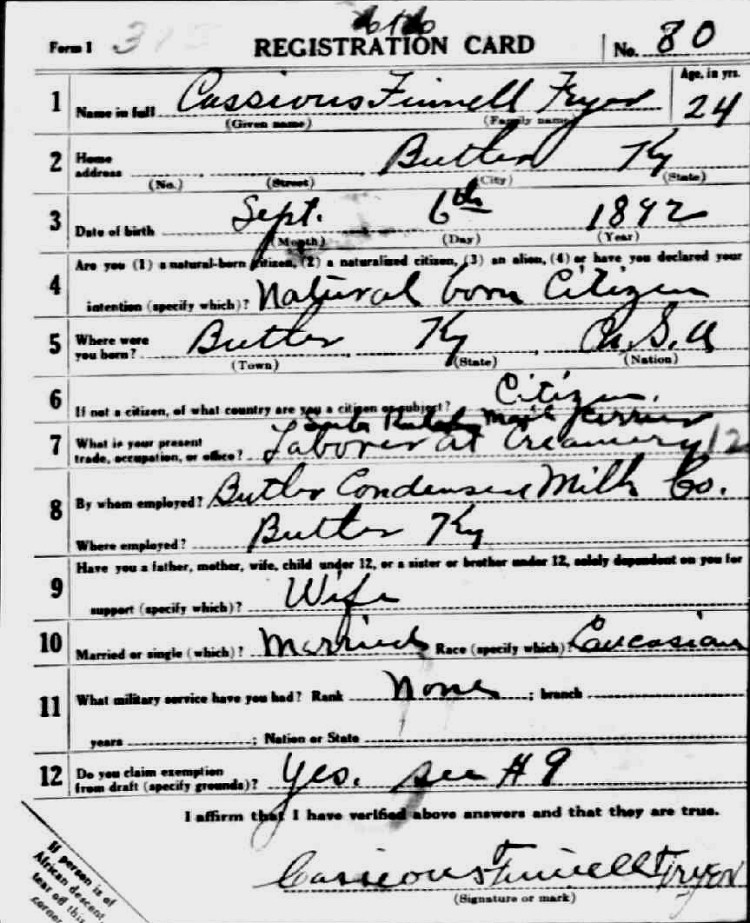 Form 1 REGISTRATION CARD No. 80
1 Name in full Cassious Finnell Fryer Age, in yrs. 24
(Given name) (Family name)
2 Home address Butler Ky
(No.) (Street) (City) (State)
3 Date of birth Sept. 6th 1892
(Month) (Day) (Year)
4 Are you (1) a natural-born citizen, (2) a naturalized citizen, (3) an alien, (4) or have you declared your
intention (specify which)? Natural born Citizen
5 Where were you born? Butler Ky U.S.A
(Town) (State) (Nation)
6 If not a citizen, of what country are you a citizen or subject? Citizen.
Mail Carrier
7 What is your present trade, occupation, or office? Laborer at Creamery 12
8 By whom employed? Butler Condensed Milk Co.
Where employed? Butler Ky
9 Have you a father, mother, wife, child under 12, or a sister or brother under 12, solely dependent on you for
support (specify which)? Wife
10 Married or single (which)? Married Race (specify which)? Caucasian
11 What military service have you had? Rank None ; branch
years ; Nation or State
12 Do you claim exemption from draft (specify grounds)? Yes. see #9
I affirm that I have verified above answers and that they are true.
Cassious Finnell Fryer
(Signature or mark)
If person is of
African descent,
tear off this
corner